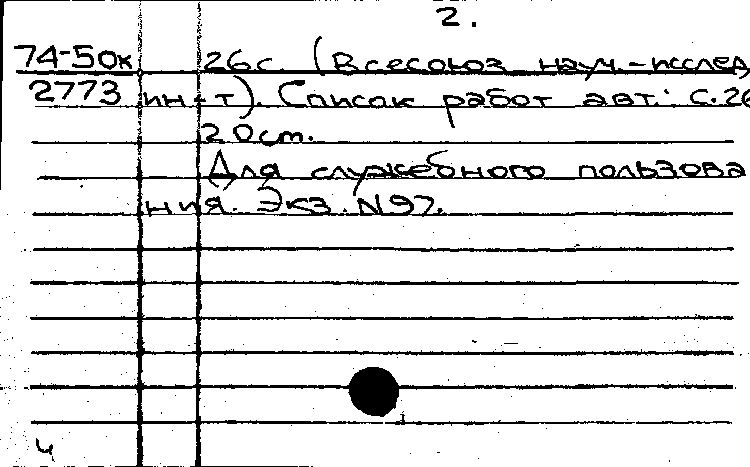 2.
74-50к 26с. (Всесоюз науч.-исслед
2773 ин-т). Список работ авт.: с. 26
20 см.
Для служебного пользова
ния. Экз. N 97.
4